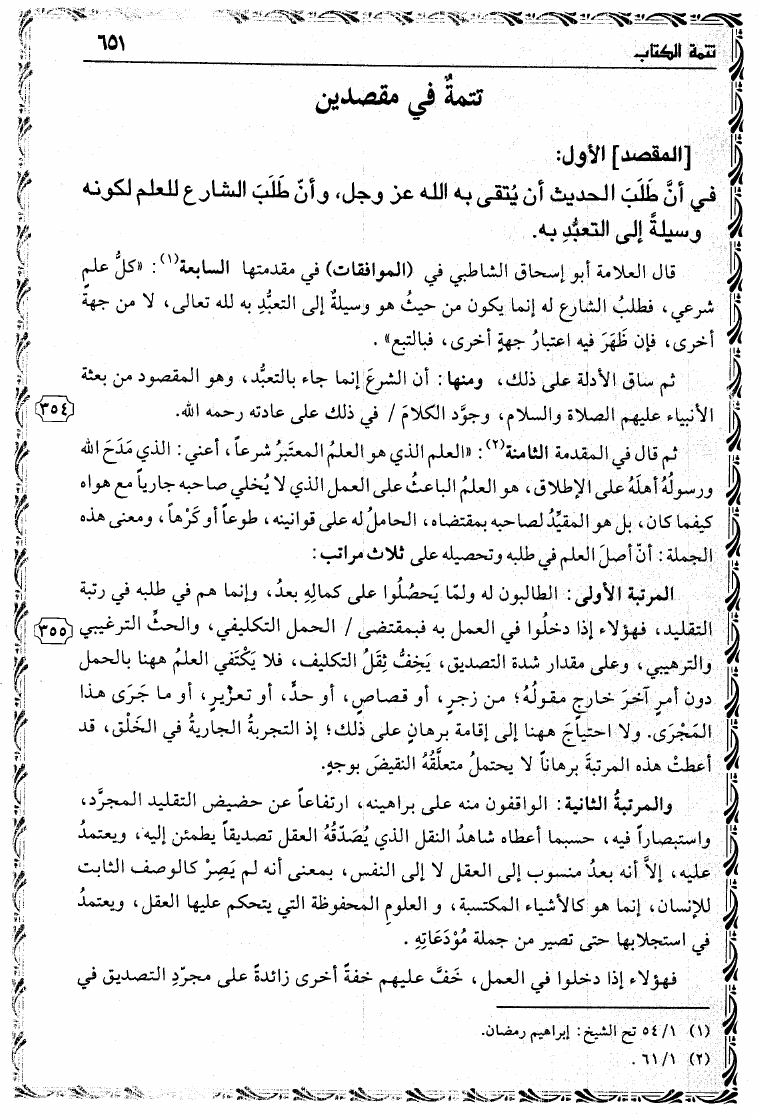 تتمة الكتاب
٦٥١
تتمةٌ في مقصدين
[المقصد] الأول:
في أنَّ طَلَبَ الحديث أن يُتقى به الله عز وجل، وأنّ طَلَبَ الشارع للعلم لكونه
وسيلةً إلى التعبُّدِ به.
قال العلامة أبو إسحاق الشاطبي في (الموافقات) في مقدمتها السابعة(١): «كلُّ علمٍ
شرعي، فطلبُ الشارع له إنما يكون من حيثُ هو وسيلةٌ إلى التعبُّدِ به لله تعالى، لا من جهةٍ
أخرى، فإن ظَهَرَ فيه اعتبارُ جهةٍ أخرى، فبالتبع».
ثم ساق الأدلة على ذلك، ومنها: أن الشرعَ إنما جاء بالتعبُّد، وهو المقصود من بعثة
الأنبياء عليهم الصلاة والسلام، وجوَّد الكلامَ / في ذلك على عادته رحمه الله.
٣٥٤
ثم قال في المقدمة الثامنة(٢): «العلم الذي هو العلمُ المعتَبرُ شرعاً، أعني: الذي مَدَحَ الله
ورسولُهُ أهلَهُ على الإطلاق، هو العلمُ الباعثُ على العمل الذي لا يُخلي صاحبه جارياً مع هواه
كيفما كان، بل هو المقيِّدُ لصاحبه بمقتضاه، الحاملُ له على قوانينه، طوعاً أو كَرْهاً، ومعنى هذه
الجملة: أنّ أصلَ العلم في طلبه وتحصيله على ثلاث مراتب:
المرتبة الأولى: الطالبون له ولمّا يَحصُلُوا على كمالِهِ بعدُ، وإنما هم في طلبه في رتبة
التقليد، فهؤلاء إذا دخلُوا في العمل به فبمقتضى / الحمل التكليفي، والحثِّ الترغيبي
٣٥٥
والترهيبي، وعلى مقدار شدة التصديق، يَخِفُّ ثِقَلُ التكليف، فلا يَكْتَفي العلمُ ههنا بالحمل
دون أمرٍ آخرَ خارجٍ مقولُهُ؛ من زجرٍ، أو قصاصٍ، أو حدٍّ، أو تعزيرٍ، أو ما جَرَى هذا
المَجْرَى. ولا احتياجَ ههنا إلى إقامة برهانٍ على ذلك؛ إذ التجربةُ الجاريةُ في الخَلْق، قد
أعطتْ هذه المرتبةَ برهاناً لا يحتملُ متعلَّقُهُ النقيضَ بوجهٍ.
والمرتبةُ الثانية: الواقفون منه على براهينه، ارتفاعاً عن حضيض التقليد المجرَّد،
واستبصاراً فيه، حسبما أعطاه شاهدُ النقل الذي يُصَدّقُهُ العقل تصديقاً يطمئن إليه، ويعتمدُ
عليه، إلاَّ أنه بعدُ منسوب إلى العقل لا إلى النفس، بمعنى أنه لم يَصِرْ كالوصف الثابت
للإنسان، إنما هو كالأشياء المكتسبة، و العلومِ المحفوظة التي يتحكم عليها العقل، ويعتمدُ
في استجلابها حتى تصير من جملة مُوْدَعَاتِهِ.
فهؤلاء إذا دخلوا في العمل، خَفَّ عليهم خفةً أخرى زائدةً على مجرَّدِ التصديق في
(١) ٥٤/١ تح الشيخ: إبراهيم رمضان.
(٢) ٦١/١.